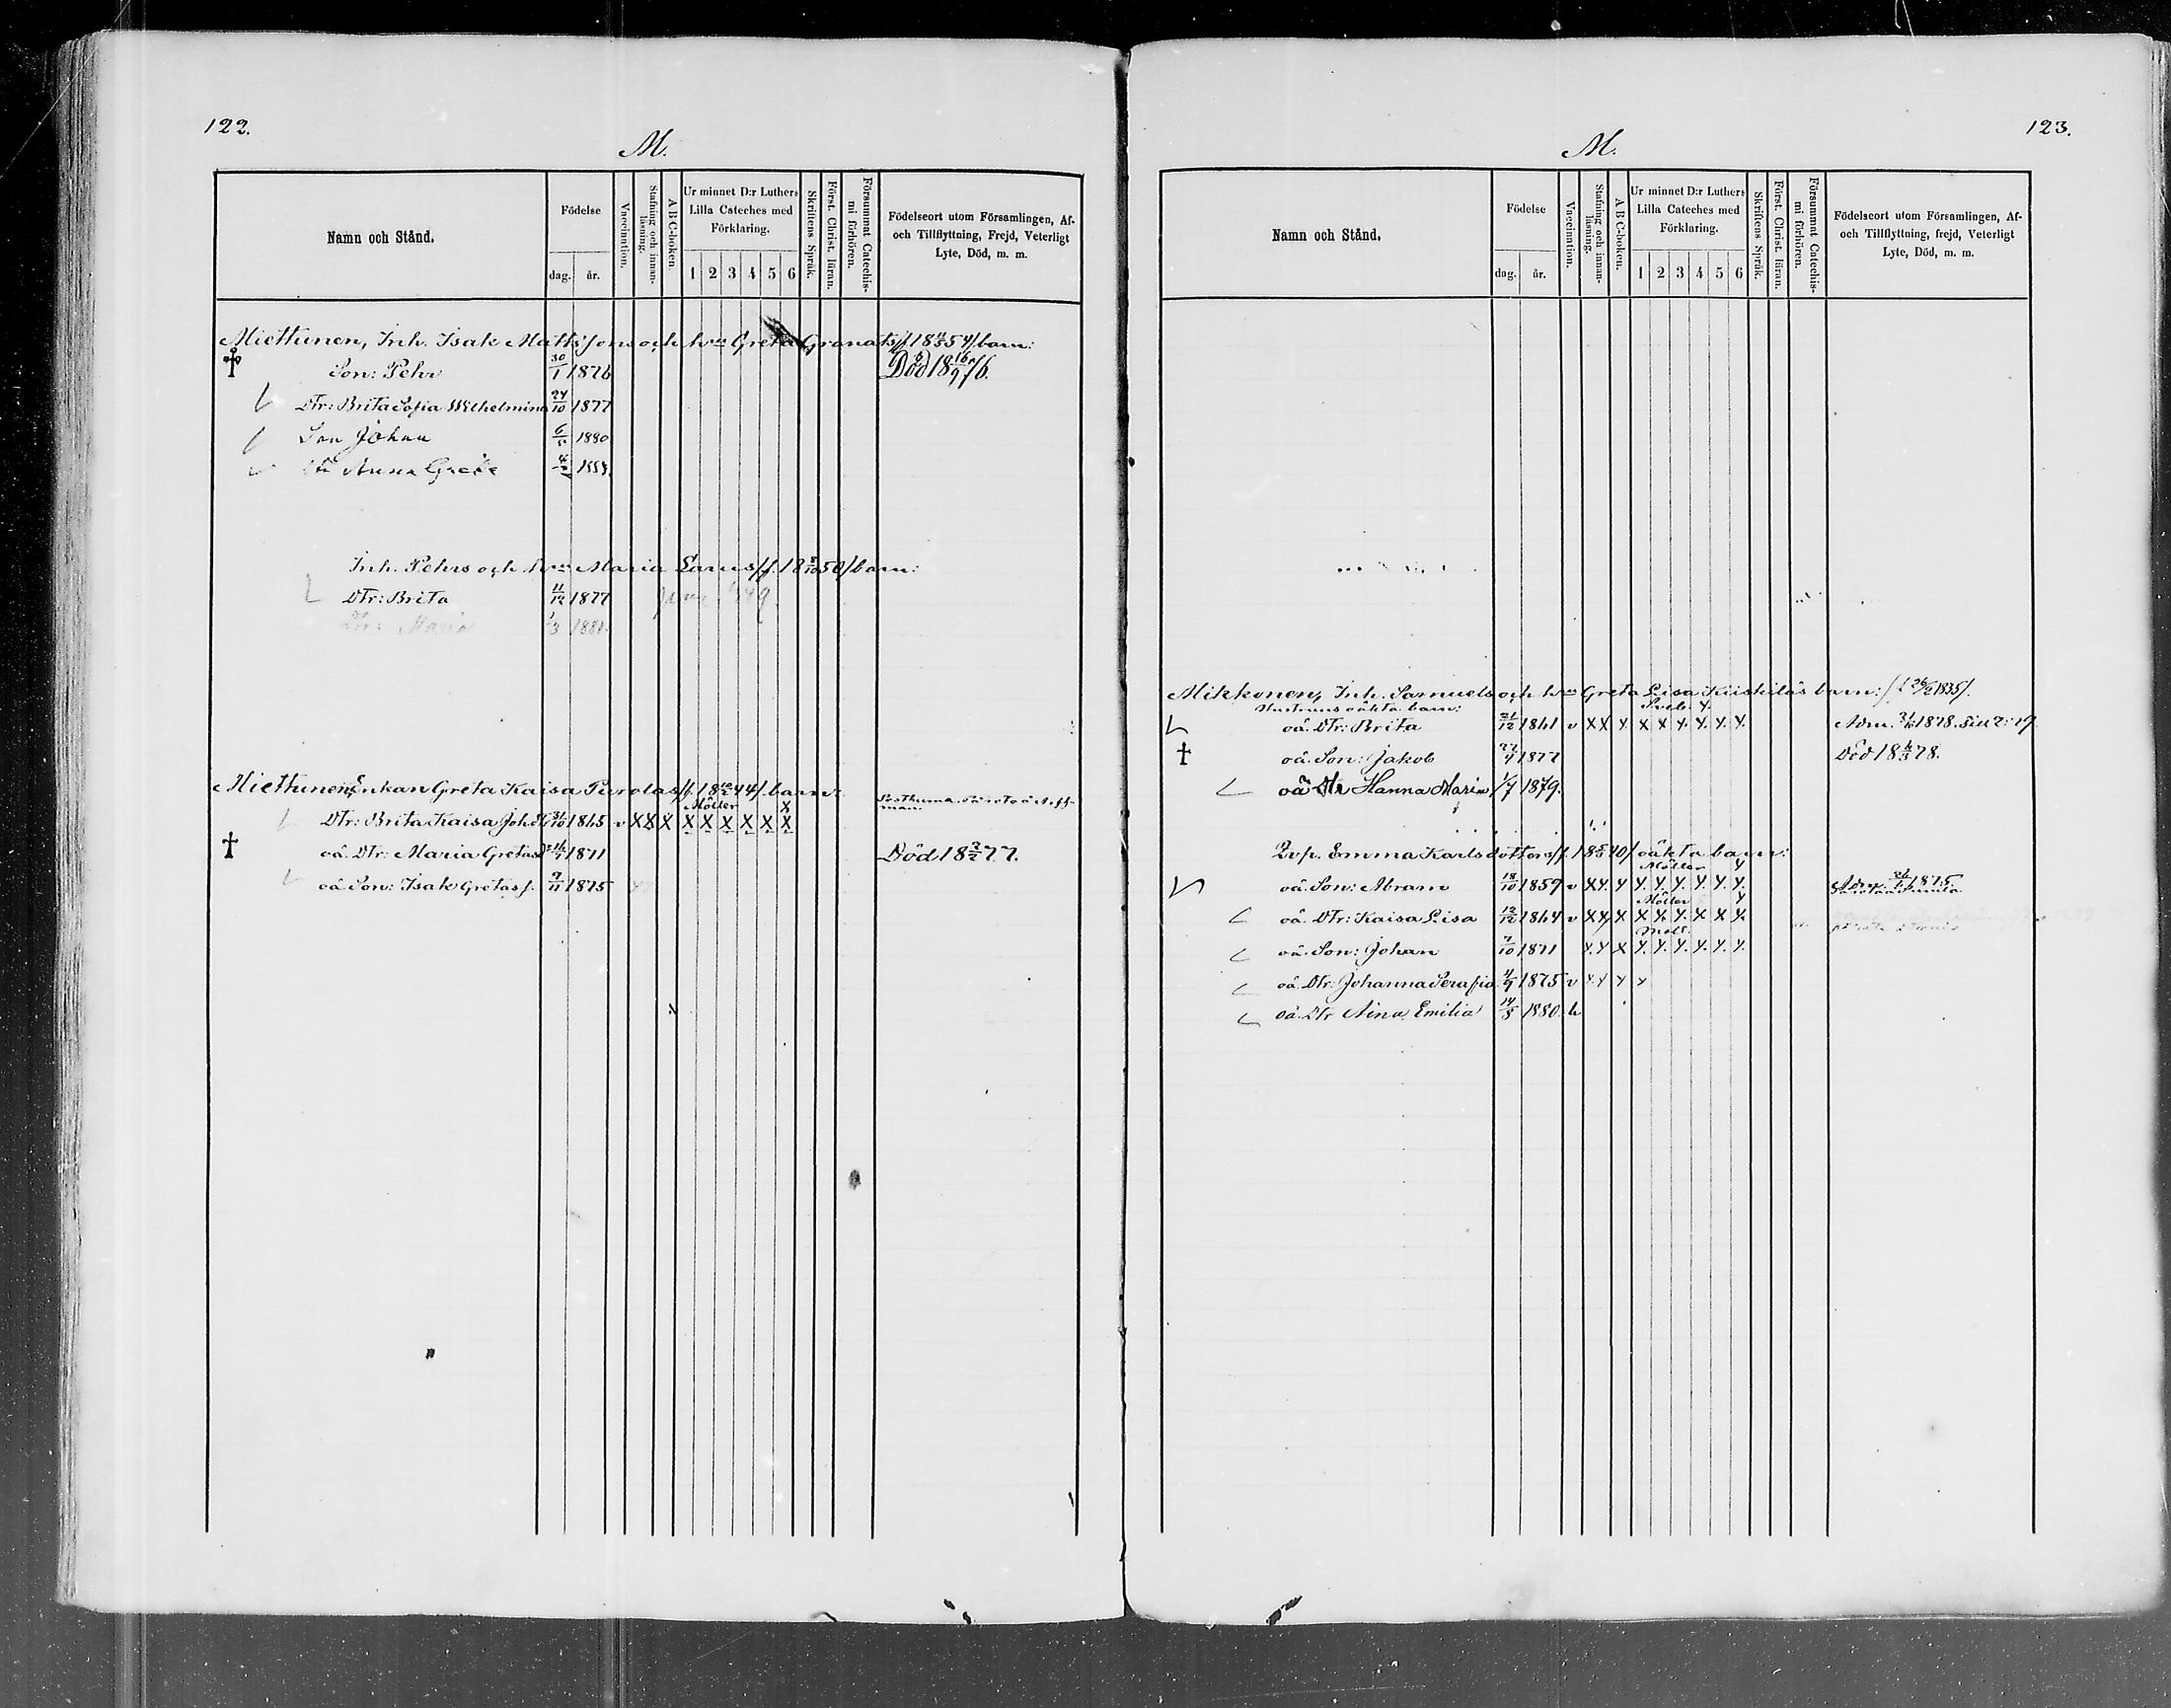 122.
M.
Namn och Stånd.
Födelse
dag. år.
Vaccination.
Stafning och innanläsning.
A B C-boken.
Ur minnet D:r Luthers
Lilla Cateches med
Förklaring.
1 2 3 4 5 6
Skriftens Språk.
Först. Christ. läran.
Försummat Catechismi förhören.
Födelseort utom Församlingen, Af-
och Tillflyttning, Frejd, Veterligt
Lyte, Död, m. m.
Miettunen, Inh. Isak Matts sons och h:us Greta Granats barn:
† Son: Pehr 30/1 1876 Död 18 16/9 76.
Dtr: Brita Sofia Wilhelmina 24/10 1877
Son Johan 1880
Anna Greta
Inh. Pehrs och h:us Maria Larus /f. 18 50/ barn:
Dtr: Brita 11/12 1877
Dtr: Maria 1/3 1881.
Miettunen, Enkan Greta Kaisa Purolas /f. 18 44/ barn:
Möller X
Dtr: Brita Kaisa Joh. 31/10 1865 v X X X X X X X X X
† oä. Dtr: Maria Gretasd 1871 Död 18 2/2 77.
oä. Son: Isak Gretas s. 9/11 1875
123.
M.
Namn och Stånd.
Födelse
dag. år.
Vaccination.
Stafning och innanläsning.
A B C-boken.
Ur minnet D:r Luthers
Lilla Cateches med
Förklaring.
1 2 3 4 5 6
Skriftens Språk.
Först. Christ. läran.
Försummat Catechismi förhören.
Födelseort utom Församlingen, Af-
och Tillflyttning, frejd, Veterligt
Lyte, Död, m. m.
Mikkonen, Inh. Samuels och h:us Greta Lisa Kiiskiläs barn: /f. 26/2 1835/.
Hustruns oäkta barn: Sveb. Y.
oä. Dtr: Brita 21/12 1861 v X X Y. X X Y. Y. Y. Y. Adm. 1878.
† oä. Son: Jakob 1877 Död 18 78.
oä Dtr Hanna Maria 1/7 1879.
Qvp. Emma Karlsdotters /f. 18 40/ oäkta barn:
Möller Y
oä. Son: Abram 18/10 1859 v X Y. Y Y. Y. Y. Y. Y. Y. Adm. 1875.
Möller Y
oä. Dtr: Kaisa Lisa 12/12 1864 v X X X X X Y. X X X
Moll.
oä. Son: Johan 1871 Y. Y X Y. Y. Y. Y. Y. Y.
oä. Dtr: Johanna Serafia 4/9 1875 v Y Y Y Y
oä. Dtr Aina Emilia 14/5 1880. h